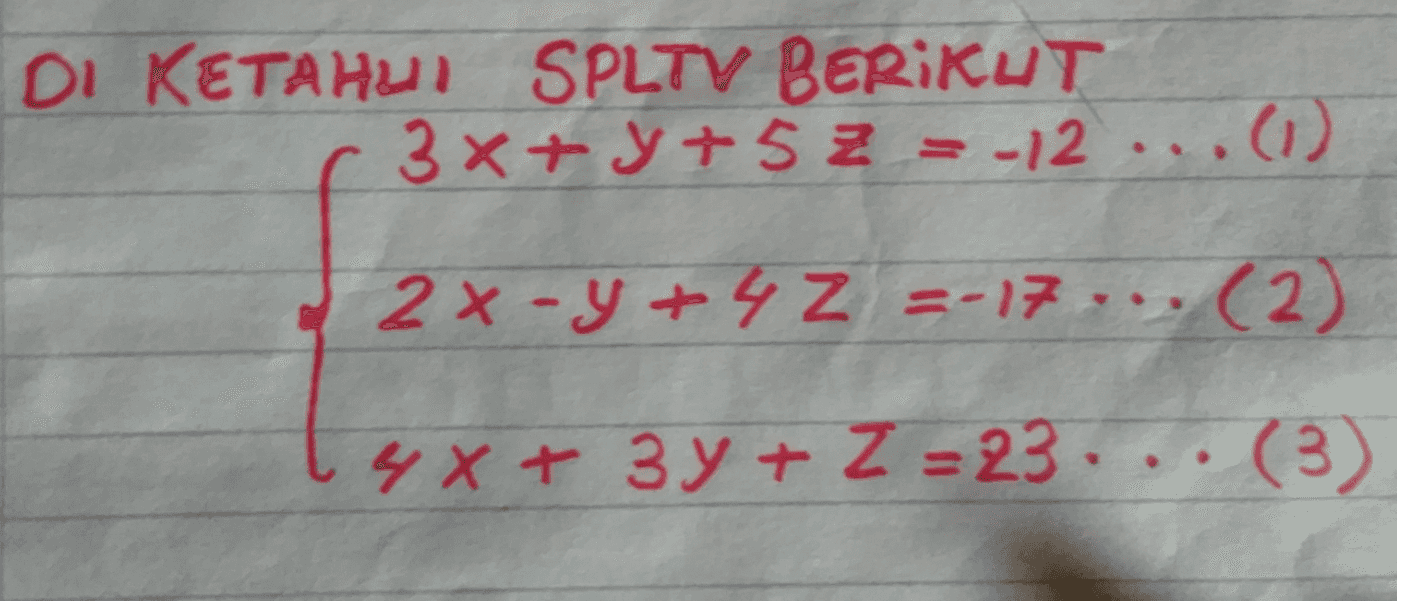 DI KETAHUI SPLTV BERiKUT
3x + y + 5z = -12 ... (1)
2x - y + 4z = -17 ... (2)
4x + 3y + z = 23 ... (3)